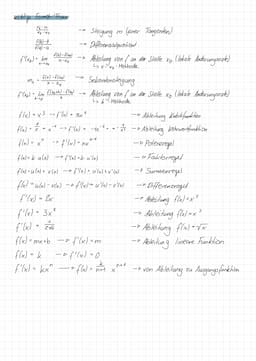 (y₂-y₁)/(x₂-x₁) → Steigung m (einer Tangente)
→ Differenzenquotient
f'(x₀) = lim x→x₀ (f(x)-f(x₀))/(x-x₀) → Ableitung von f an der Stelle x₀ (lokale Änderungsrate)
↳ Methode
mₛ = → Sekantensteigung
f'(x₀) = lim h→0 (f(x₀+h)-f(x₀))/h → Ableitung von f an der Stelle x₀ (lokale Änderungsrate)
↳ h-Methode
→ Ableitung
→ Ableitung
f(x) = xⁿ → f'(x) = nxⁿ⁻¹ → Potenzregel
f(x) = k·u(x) → f'(x) = k·u'(x) → Faktorregel
f(x) = u(x) + v(x) → f'(x) = u'(x) + v'(x) → Summenregel
f(x) = u(x) - v(x) → f'(x) = u'(x) - v'(x) → Differenzregel
f'(x) = 2x → Ableitung f(x) = x²
f'(x) = 3x² → Ableitung f(x) = x³
f'(x) = 1/(2√x) → Ableitung f(x) = √x
f(x) = mx+b → f'(x) = m → Ableitung lineare Funktion
f(x) = k → f'(x) = 0
f'(x) = kxⁿ → f(x) = k/(n+1) xⁿ⁺¹ → von Ableitung zu Ausgangsfunktion